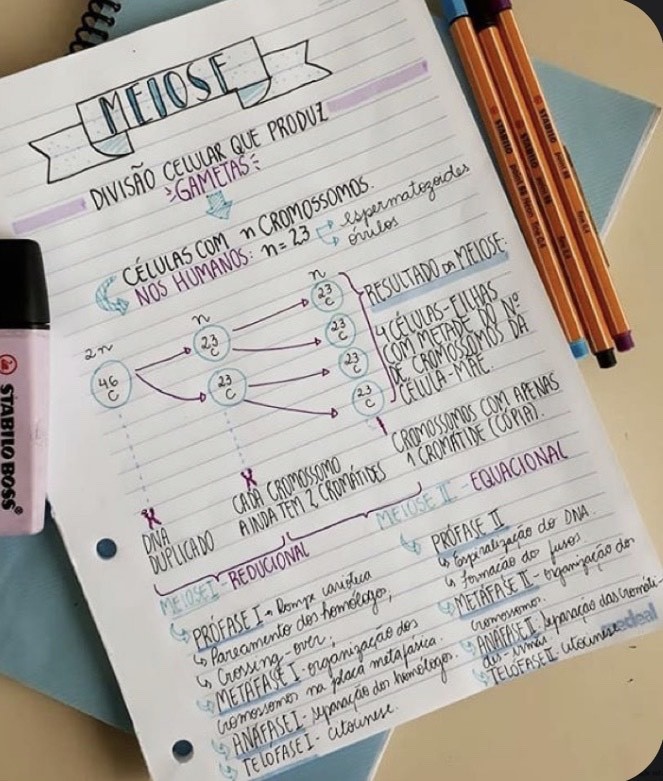 MEIOSE
DIVISÃO CELULAR QUE PRODUZ
GAMETAS
CÉLULAS COM n CROMOSSOMOS.
NOS HUMANOS: n = 23
espermatozoides
óvulos
2n
n
n
46
C
23
C
23
C
23
C
23
C
23
C
23
C
RESULTADO DA MEIOSE:
4 CÉLULAS-FILHAS
COM METADE DO Nº
DE CROMOSSOMOS DA
CÉLULA-MÃE.
CROMOSSOMOS COM APENAS
1 CROMÁTIDE (CÓPIA).
DNA
DUPLICADO
CADA CROMOSSOMO
AINDA TEM 2 CROMÁTIDES
MEIOSE I - REDUCIONAL
PRÓFASE I - Rompe carioteca
Pareamento dos homólogos;
Crossing-over;
METÁFASE I - organização dos
cromossomos na placa metafásica.
ANÁFASE I - separação dos homólogos.
TELÓFASE I - citocinese.
MEIOSE II - EQUACIONAL
PRÓFASE II
Espiralização do DNA.
Formação do fuso
METÁFASE II - organização dos
cromossomos.
ANÁFASE II - separação das cromáti-
des-irmãs.
TELÓFASE II - citocinese
STABILO BOSS
STABILO
STABILO
STABILO